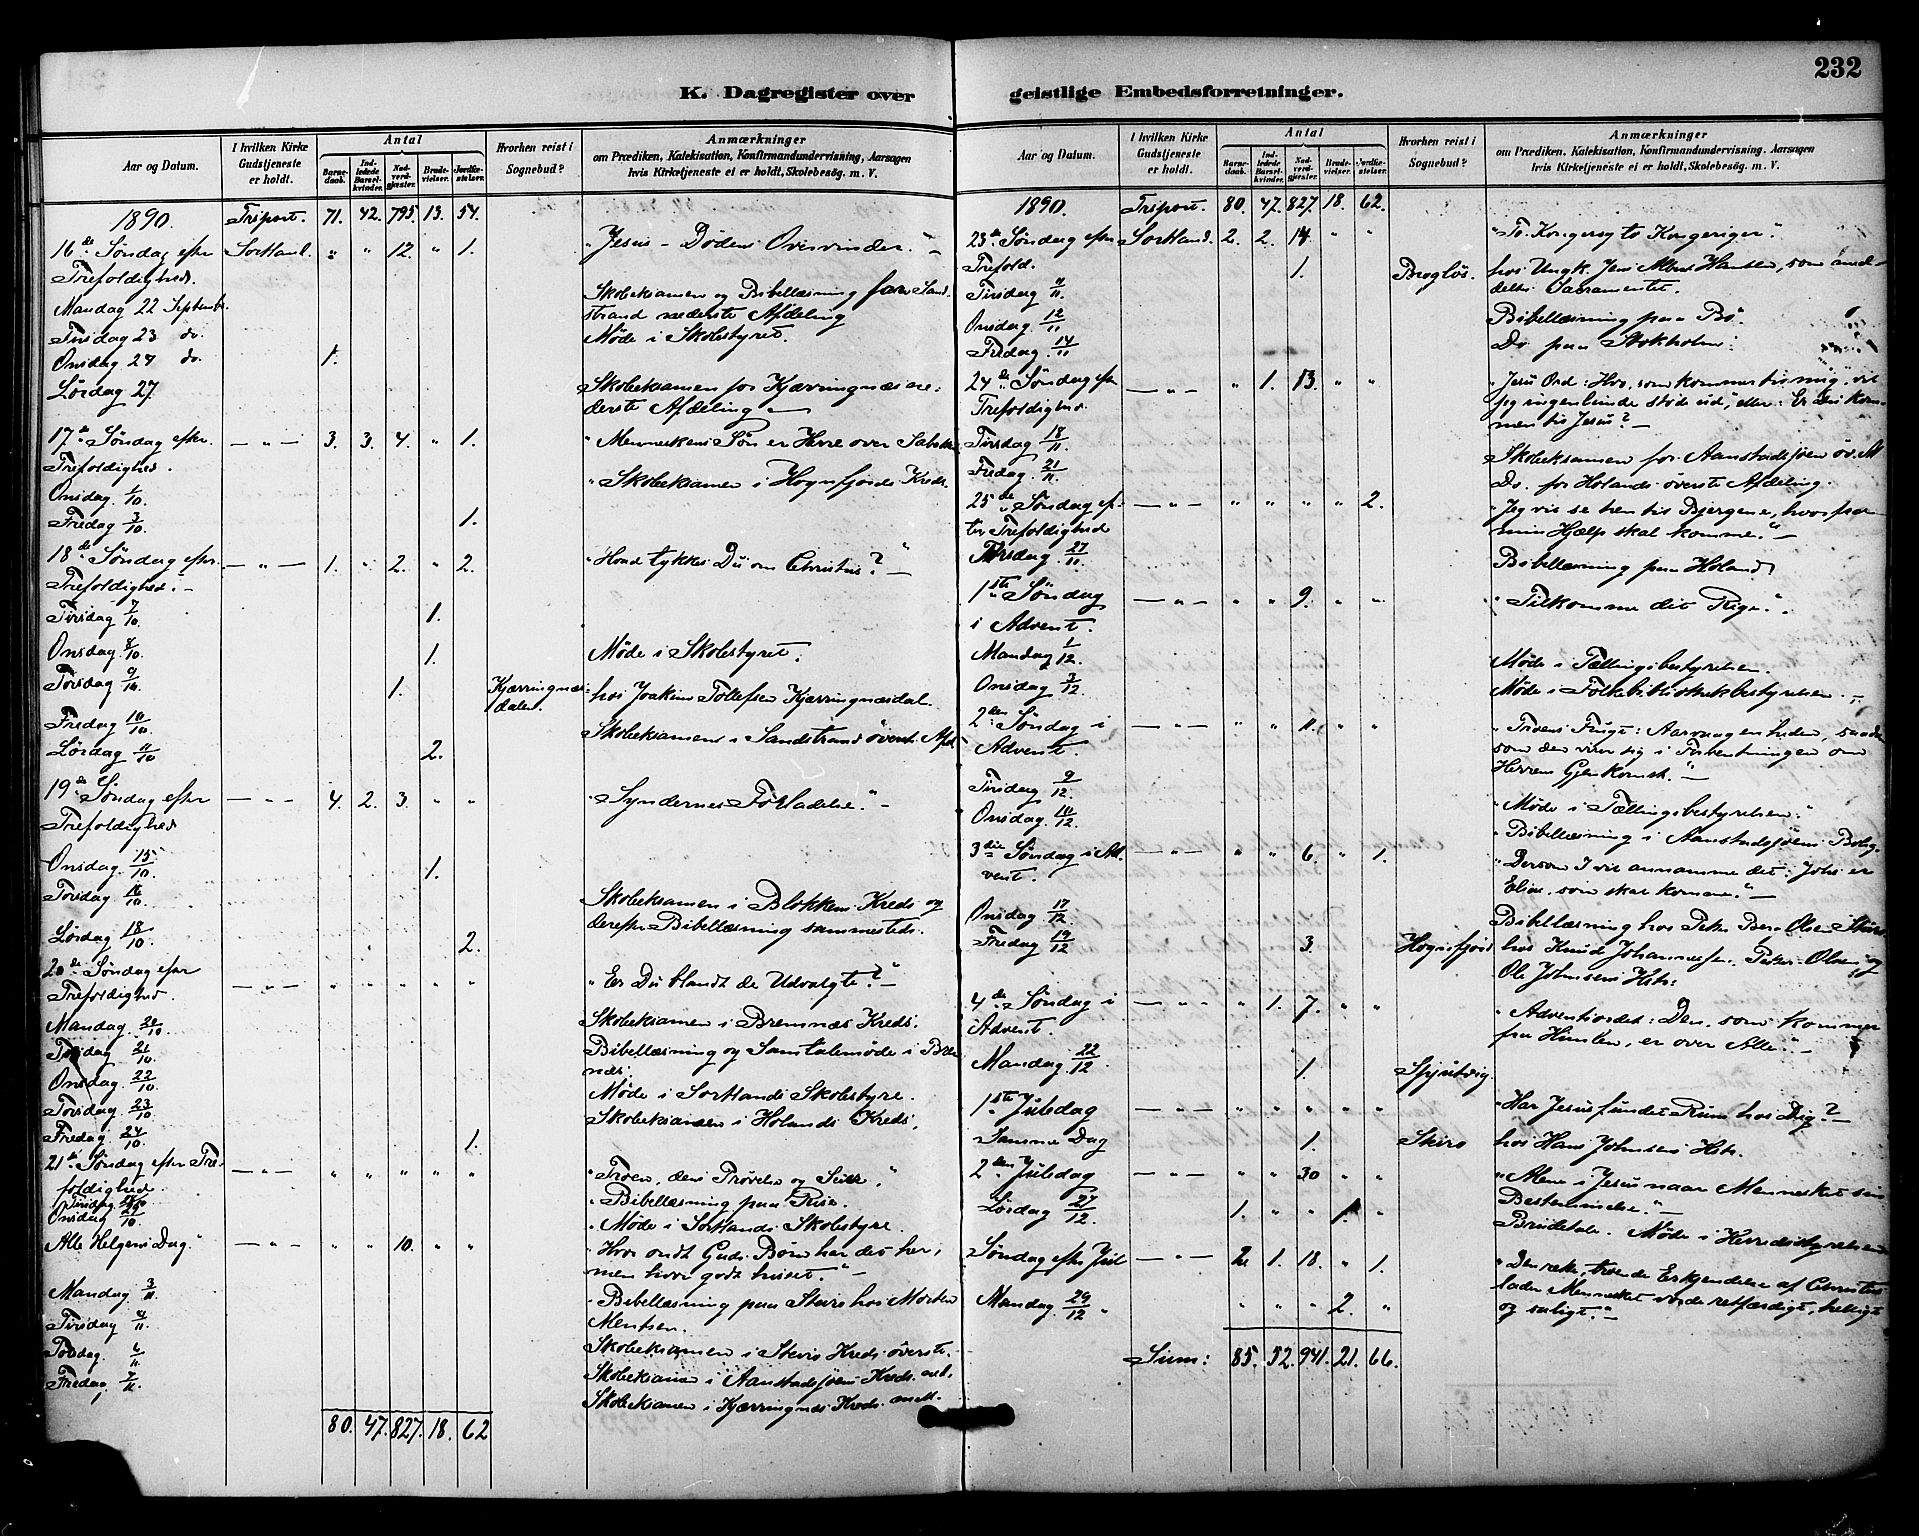 232
K. Dagregister over geistlige Embedsforretninger.
Aar og Datum.
I hvilken Kirke Gudstjeneste er holdt.
Antal
Barnedaab.
Indledede Barselkvinder.
Nadverdgjester.
Brudevielser.
Jordkastelser.
Hvorhen reist i Sognebud?
Anmærkninger
om Prædiken, Katekisation, Konfirmandundervisning, Aarsagen
hvis Kirketjeneste ei er holdt, Skolebesøg. m. V.
1890. Trsport. 71. 42. 795. 13. 54.
16de Søndag efter Sortland. " " 12. " 1. "Jesus - Dødens Overvinder."
Trefoldighed.
Mandag 22 Septembr. Skoleksamen og Bibellæsning for Sand-
strand nederste Afdeling
Tirsdag 23 do. Møde i Skolestyret.
Onsdag 24 do. 1.
Lørdag 27. Skoleksamen for Kjærringnæs ne-
derste Afdeling
17de Søndag efter — " — 3. 3. 4. " 1. "Menneskens Søn er Herre over Sabaten
Trefoldighed.
Onsdag 1/10 "Skoleksamen i Hognfjords Kreds.
Fredag 3/10 1.
18de Søndag efter — " — 1. " 2. " 2. "Hvad tykkes Du om Christus?"
Trefoldighed.
Tirsdag 7/10 1.
Onsdag 8/10 1. Møde i Skolestyret.
Torsdag 9/10 1. Kjærringnæs-
dalen. hos Joakim Tollefsen Kjærringnæsdal.
Fredag 10/10. Skoleksamen i Sandstrand øverst. Afd.
Lørdag 11/10 2.
19de Søndag efter — " — 4. 2. 3. " " "Syndernes Forladelse."
Trefoldighed
Onsdag 15/10 1.
Torsdag 16/10 Skoleksamen i Blokken Kreds og
derefter Bibellæsning sammesteds.
Lørdag 18/10. 2.
20de Søndag efter — " — " " " " " "Er Du blandt de Udvalgte?"
Trefoldighed.
Mandag 20/10. Skoleksamen i Bremnæs Kreds.
Tirsdag 21/10 Bibellæsning og Samtalemøde i Brem
næs.
Onsdag 22/10 Møde i Sortlands Skolestyre.
Torsdag 23/10 Skoleksamen i Holands Kreds.
Fredag 24/10 1.
21de Søndag efter Tre- — " — " " " " " "Troen, dens Prøvelse og Seier."
foldighed.
Tirsdag 28/10 Bibellæsning paa Rise.
Onsdag 29/10 Møde i Sortlands Skolestyre.
Alle Helgens Dag." — " — " " 10. " " "Hvor ondt Guds Børn har det her,
men hvor godt hisset."
Mandag 3/11 Bibellæsning paa Steiro hos Morten
Mentsen.
Tirsdag 4/11.
Torsdag 6/11 Skoleksamen i Steiro Kreds øverste.
Fredag 7/11 Skoleksamen i Aanstadsjøens Kreds. ned.
Skoleksamen i Kjærringnæs Kreds.
80. 47. 827. 18. 62
Aar og Datum.
I hvilken Kirke Gudstjeneste er holdt.
Antal
Barnedaab.
Indledede Barselkvinder.
Nadverdgjester.
Brudevielser.
Jordkastelser.
Hvorhen reist i Sognebud?
Anmærkninger
om Prædiken, Katekisation, Konfirmandundervisning, Aarsagen
hvis Kirketjeneste ei er holdt, Skolebesøg. m. V.
1890. Trsport. 80. 47. 827. 18. 62.
23de Søndag efter Sortland. 2. 2. 14. " " "To Konger og to Kongeriger."
Trefold. 1. hos Ungk. Jens Albert Hansen, som
deltes Sacramentet.
Tirsdag 11/11.
Onsdag 12/11 Bibellæsning paa Bø.
Fredag 14/11 Do paa Stokholm.
24de Søndag efter — " — " 1. 13. " " "Jesu Ord: Hvo, som kommer til mig, vil
Trefoldighed. jeg ingenlunde støde ud," eller: Er Du kom-
men til Jesus?
Tirsdag 18/11 Skoleksamen for Aanstadsjøen øv. Afd
Fredag 21/11. Do. for Holands øverste Afdeling.
25de Søndag ef- — " — " " " " 2. "Jeg vil se hen til Bjergene, hvorfra
ter Trefoldighed min Hjælp skal komme."
Torsdag 27/11. Bibellæsning paa Holand
1ste Søndag — " — " " 9. " " "Tilkomme dit Rige."
i Advent.
Mandag 1/12. Møde i Tællingsbestyrelsen
Onsdag 3/12 Møde i Folkebibliothekbestyrelsen.
2den Søndag i — " — " " 11. " " "Troens Frugt: Aarvaagenheden, saadan
Advent. som den viser sig i Forventningen om
Herrens Gjenkomst."
Tirsdag 9/12. "Møde i Tællingsbestyrelsen."
Onsdag 10/12. "Bibellæsning i Aanstadsjøens Bolig.
3die Søndag i Ad- — " — " " 6. " 1. "Dersom I vil annamme det: Johs er
vent. Elias, som skal komme."
Onsdag 17/12 Bibellæsning hos Peter Berg Olsen Steiro
Fredag 19/12 3. Hognfjord hos Knud Johannessen, Peter Olsen og
Ole Johnsens Hstr:
4de Søndag i — " — " 1. 7. " " "Adventsordet: Den, som kommer
Advent fra Himlen, er over Alle."
Mandag 22/12. 1. Spjutvig.
1ste Juledag — " — " " " " " "Har Jesus fundet Rum hos Dig?
Samme Dag 1. Steiro hos Hans Johnsens Hstr.
2den Juledag — " — " " 30 " " "Alene i Jesus naar Mennesket sin
Bestemmelse."
Lørdag 27/12. 1. " " 1. " Brudetale. Møde i Herredsstyrelsen
Søndag efter Jul — " — 2 1. 18. " 1. "Den rette, troende Erkjendelse af Christus
lader Mennesket vorde retfærdigt, helligt
og saligt."
Mandag 29/12 " " " 2. "
Sum: 85. 52. 941. 21. 66.